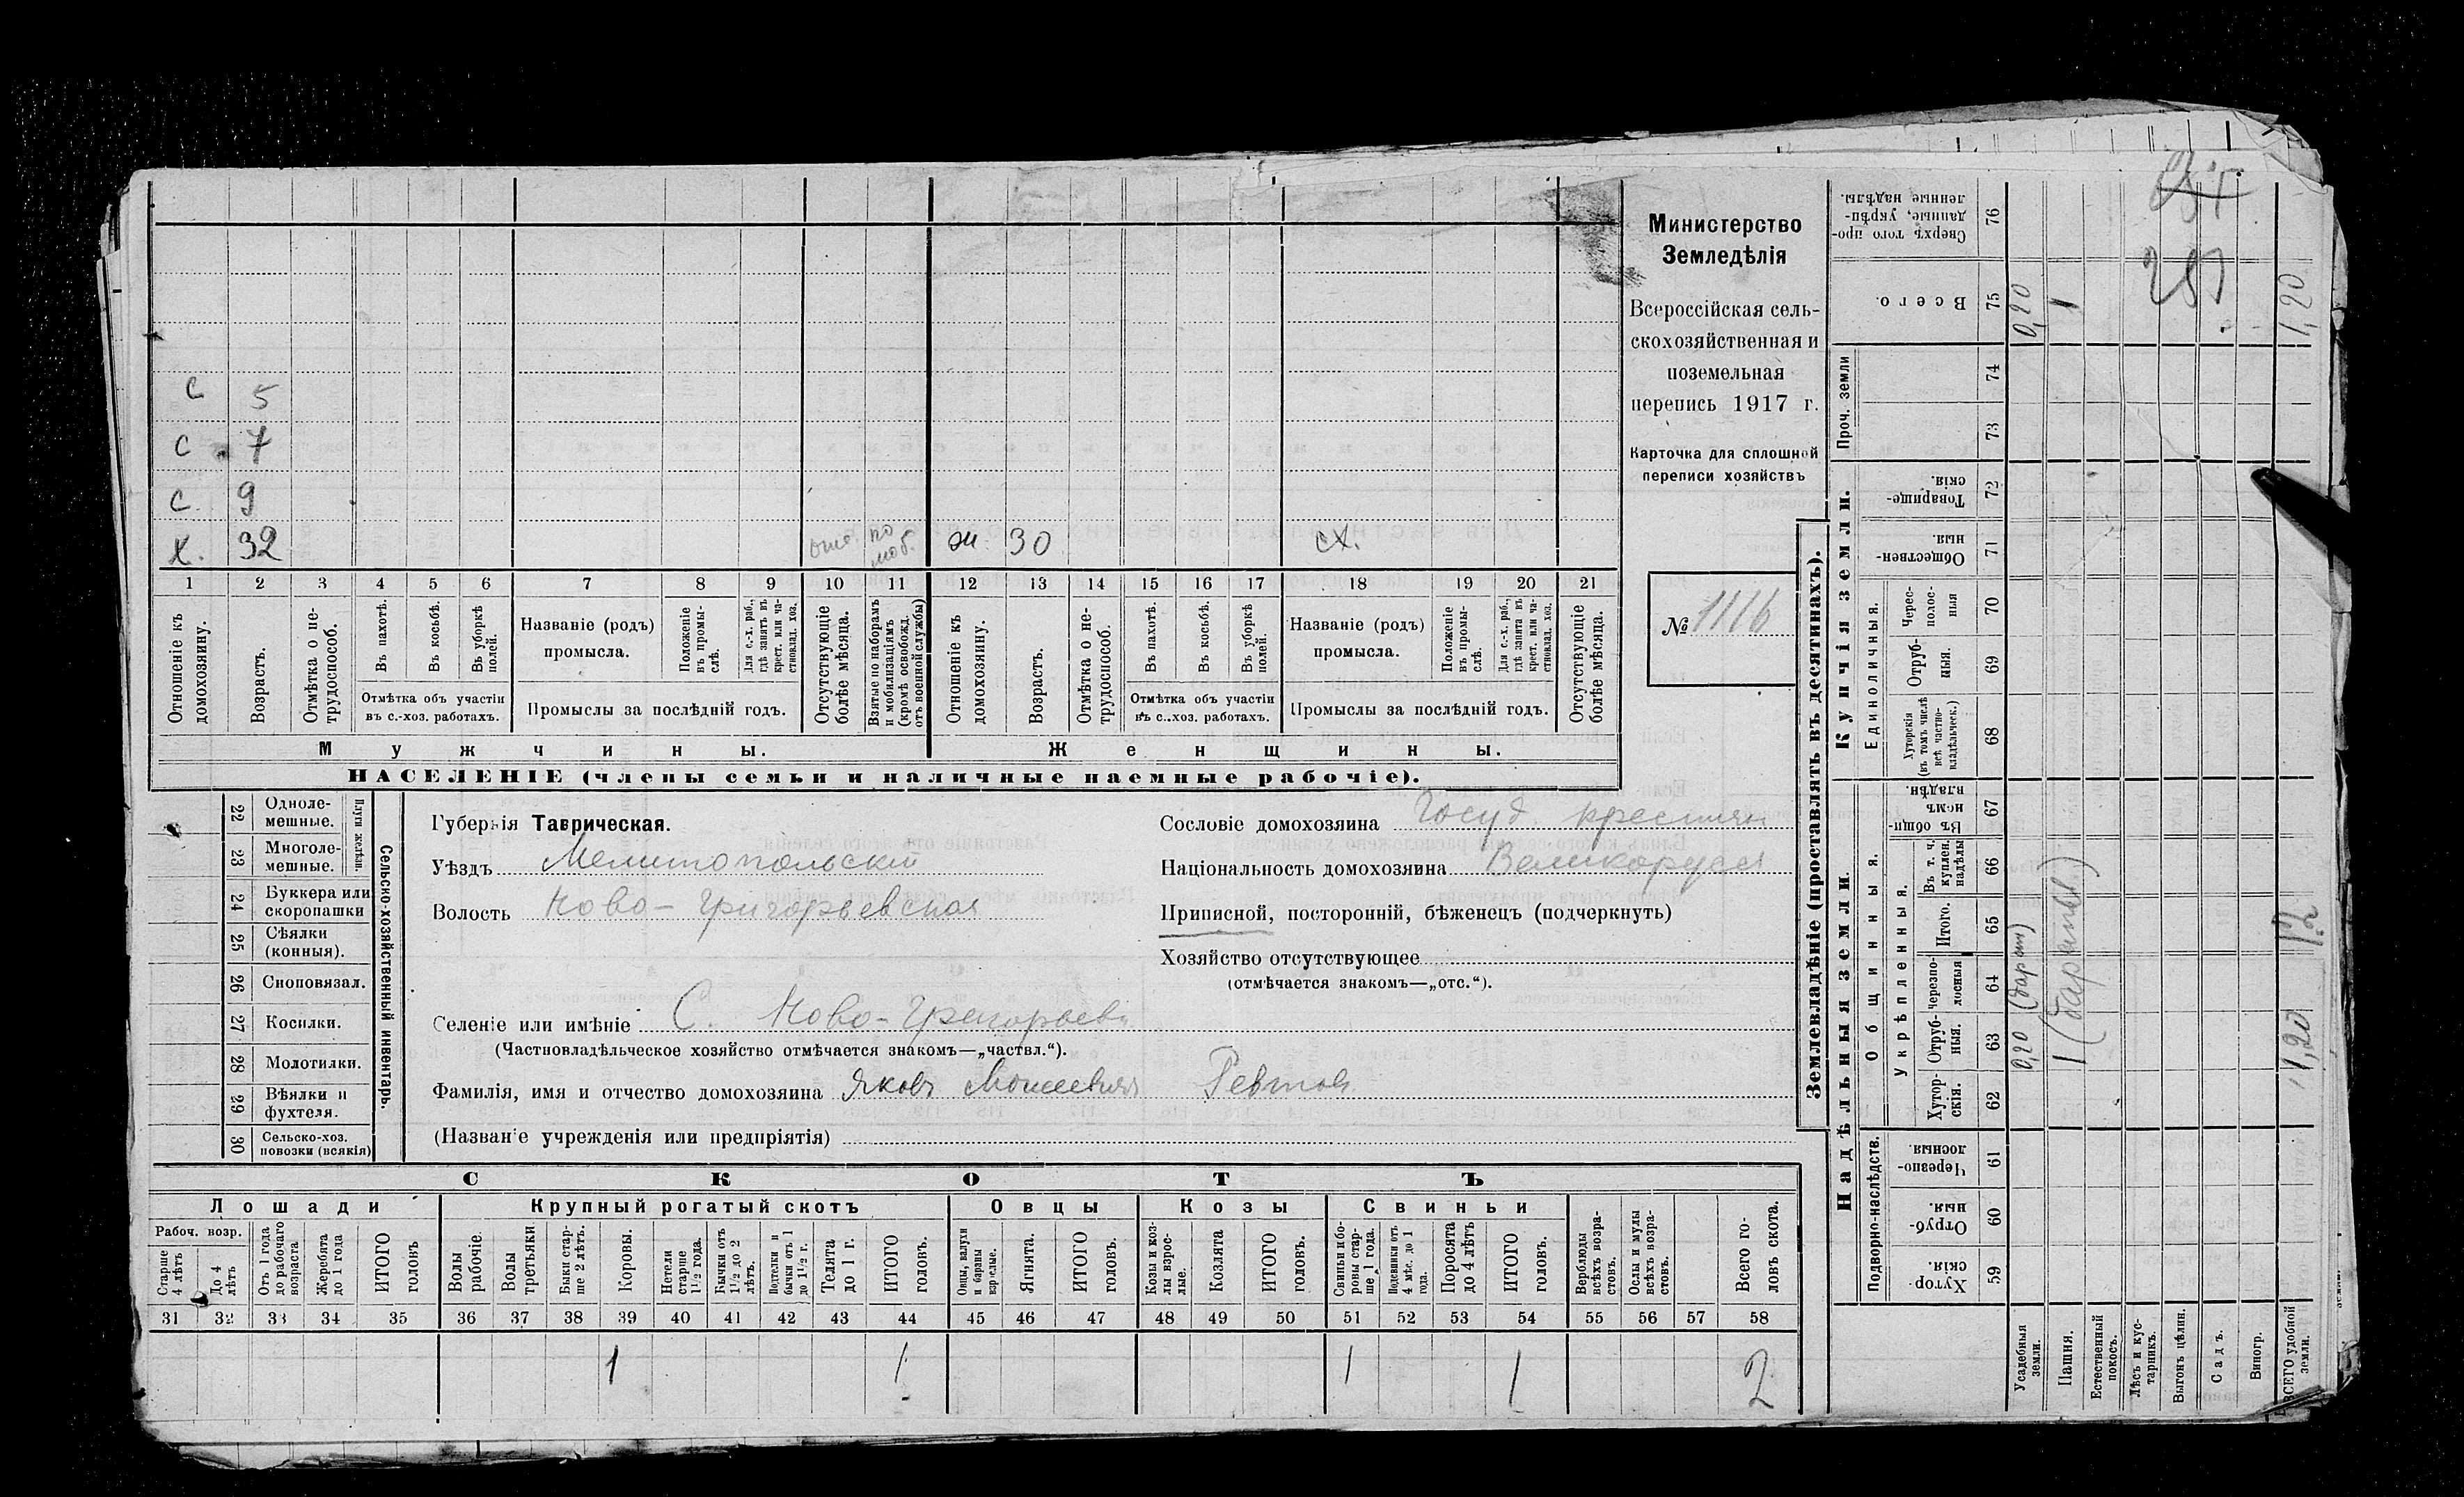 Министерство
Земледѣлія
Всероссійская сель-
скохозяйственная и
поземельная
перепись 1917 г.
Карточка для сплошной
переписи хозяйствъ
№ 1116
с 5
с 7
с. 9
х. 32 отс. по моб. ж. 30 сх.
1 2 3 4 5 6 7 8 9 10 11 12 13 14 15 16 17 18 19 20 21
Отношеніе къ домохозяину.
Возрастъ.
Отмѣтка о не-трудоспособ.
Въ пахотѣ.
Въ косьбѣ.
Въ уборкѣ полей.
Отмѣтка объ участіи въ с.-хоз. работахъ.
Названіе (родъ) промысла.
Положеніе въ промы-слѣ.
Для с.-х. раб., гдѣ занятъ въ крест. или ча-стновлад. хоз.
Промыслы за послѣдній годъ.
Отсутствующіе болѣе мѣсяца.
Взятые по наборамъ и мобилизаціямъ (кромѣ освобожд. отъ военной службы)
Отношеніе къ домохозяину.
Возрастъ.
Отмѣтка о не-трудоспособ.
Въ пахотѣ.
Въ косьбѣ.
Въ уборкѣ полей.
Отмѣтка объ участіи въ с..хоз. работахъ.
Названіе (родъ) промысла.
Положеніе въ промы-слѣ.
Для с.-х. раб., гдѣ занята въ крест. или ча-стновлад. хоз.
Промыслы за послѣдній годъ.
Отсутствующіе болѣе мѣсяца.
Мужчины. Женщины.
НАСЕЛЕНІЕ (члены семьи и наличные наемные рабочіе).
22 Одноле-мешные.
23 Многоле-мешные.
Плуги желѣзн.
24 Буккера или скоропашки
25 Сѣялки (конныя).
26 Сноповязал.
27 Косилки.
28 Молотилки.
29 Вѣялки и фухтеля.
30 Сельско-хоз. повозки (всякія)
Сельско-хозяйственный инвентарь.
Губернія Таврическая.
Уѣздъ Мелитопольскій
Волость Ново-Григорьевская
Селеніе или имѣніе С. Ново-Григорьевк
(Частновладѣльческое хозяйство отмѣчается знакомъ—„частвл.“).
Фамилія, имя и отчество домохозяина Яковъ Моисеевичъ Ревтов
(Названіе учрежденія или предпріятія)
Сословіе домохозяина Госуд. крестьян
Національность домохозяина Великоросся
Приписной, посторонній, бѣженецъ (подчеркнуть)
Хозяйство отсутствующее
(отмѣчается знакомъ—„отс.“).
СКОТЪ
Лошади Крупный рогатый скотъ Овцы Козы Свиньи
Рабоч. возр.
Старше 4 лѣтъ
До 4 лѣтъ
Отъ 1 года до рабочаго возраста
Жеребята до 1 года
ИТОГО головъ
Волы рабочіе.
Волы третьяки
Быки стар-ше 2 лѣтъ.
Коровы.
Нетели старше 1 1/2 года.
Бычки отъ 1 1/2 до 2 лѣтъ.
Подтелки и бычки отъ 1 до 1 1/2 г.
Телята до 1 г.
ИТОГО головъ.
Овцы, валухи и бараны взрослые.
Ягнята.
ИТОГО головъ.
Козы и коз-лы взрос-лые.
Козлята
ИТОГО головъ.
Свиньи и бо-ровы стар-ше 1 года.
Подсвинки отъ 4 мѣс. до 1 года.
Поросята до 4 лѣтъ
ИТОГО головъ.
Верблюды всѣхъ возра-стовъ.
Ослы и мулы всѣхъ возра-стовъ.
Всего го-ловъ скота.
31 32 33 34 35 36 37 38 39 40 41 42 43 44 45 46 47 48 49 50 51 52 53 54 55 56 57 58
1 1 1 1 2
Землевладѣніе (проставлять въ десятинахъ).
Надѣльныя земли. Купчія земли. Проч. земли
Подворно-наслѣдств.
Общинныя.
Укрѣпленныя.
Единоличныя.
Хутор-скія. 59
Отруб-ныя. 60
Черезпо-лосныя 61
Хутор-скія. 62
Отруб-ныя. 63
Черезпо-лосныя 64
Итого. 65
Въ т. ч. куплен. надѣлы 66
Въ общи-немъ владѣн. 67
Хуторскія (въ томъ числѣ всѣ частно-владѣльческ.) 68
Отруб-ныя. 69
Черес-полос-ныя 70
Обществен-ныя. 71
Товарище-скія. 72
73
74
Всего. 75
Сверхъ того про-данные, укрѣп-ленные надѣлы. 76
Усадебныя земли. 0,20 0,20
Пашня. 1 1
Естественный покосъ.
Лѣсъ и кус-тарникъ.
Выгонъ цѣлин.
Садъ.
Виногр.
ВСЕГО удобной земли. 1,20 1,20